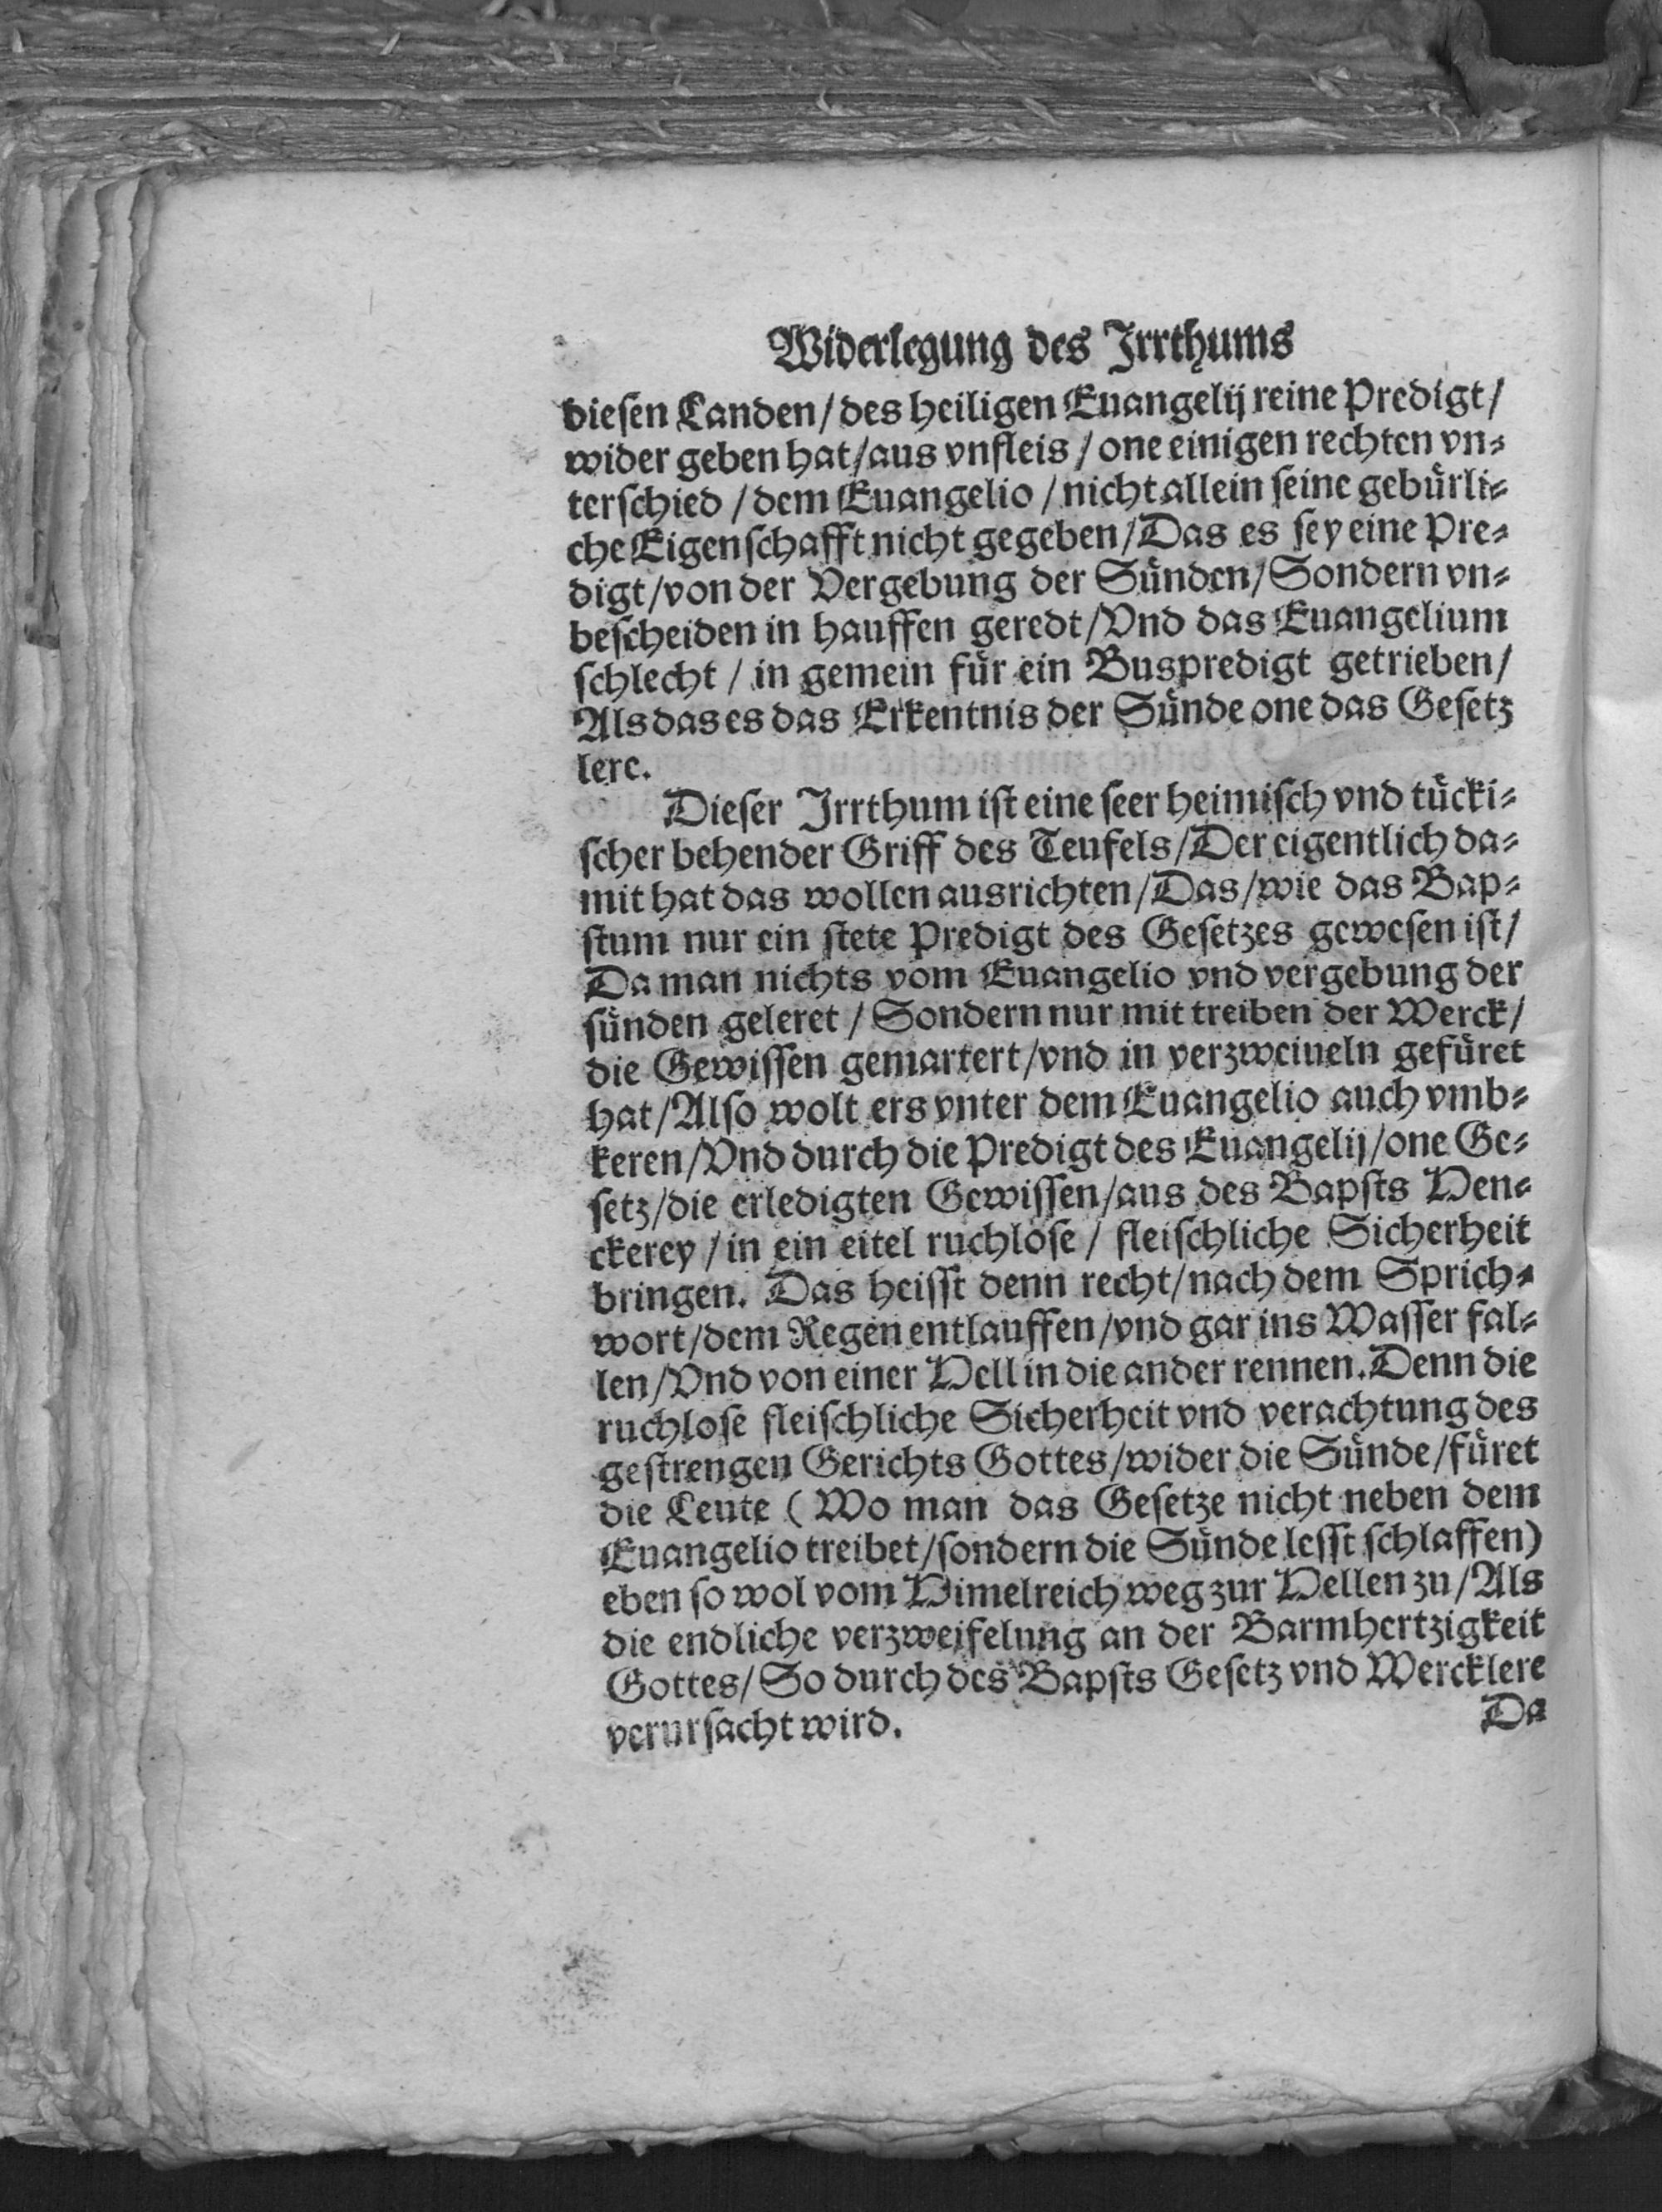 Widerlegung des Irrthums
diesen Landen/des heiligen Euangelij reine Predigt/
wider geben hat/aus vnfleis/one einigen rechten vn⸗
terschied/dem Euangelio/nicht allein seine gebürli⸗
che Eigenschafft nicht gegeben/Das es sey eine Pre⸗
digt/von der Vergebung der Sünden/Sondern vn⸗
bescheiden in hauffen geredt/Vnd das Euangelium
schlecht/in gemein für ein Buspredigt getrieben/
Als das es das Erkentnis der Sünde one das Gesetz
lere.
Dieser Irrthum ist eine seer heimisch vnd tücki⸗
scher behender Griff des Teufels/Der eigentlich da⸗
mit hat das wollen ausrichten/Das/wie das Bap⸗
stum nur ein stete Predigt des Gesetzes gewesen ist/
Da man nichts vom Euangelio vnd vergebung der
sünden geleret/Sondern nur mit treiben der Werck/
die Gewissen gemartert/vnd in verzweiueln gefüret
hat/Also wolt ers vnter dem Euangelio auch vmb⸗
keren/Vnd durch die Predigt des Euangelij/one Ge⸗
setz/die erledigten Gewissen/aus des Bapsts Hen⸗
ckerey/in ein eitel ruchlose/fleischliche Sicherheit
bringen. Das heisst denn recht/nach dem Sprich⸗
wort/dem Regen entlauffen/vnd gar ins Wasser fal⸗
len/Vnd von einer Hell in die ander rennen. Denn die
ruchlose fleischliche Sicherheit vnd verachtung des
gestrengen Gerichts Gottes/wider die Sünde/füret
die Leute (Wo man das Gesetze nicht neben dem
Euangelio treibet/sondern die Sünde lesst schlaffen)
eben so wol vom Himelreich weg zur Hellen zu/Als
die endliche verzweifelung an der Barmhertzigkeit
Gottes/So durch des Bapsts Gesetz vnd Wercklere
verursacht wird.
Da